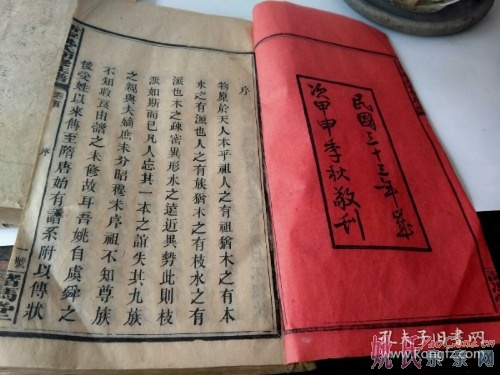 民國三十三年歲
次甲申季秋敬刊
序
物原於天人本乎祖人之有祖猶木之有本
水之有源也人之有族猶木之有枝水之有
派也木之疎密異形水之遠近異勢此則枝
派如斯而已凡人忘其一本之誼失其九族
之親與大觴庶未分昭穆未序祖不知尊族
不知收良由譜之未修故耳吾姚自虞舜之
後受姓以來傳至隋唐始有譜系附以傳狀
卷首
序
一號
孔夫子旧书网
www.kongfz.com
姚氏宗亲网